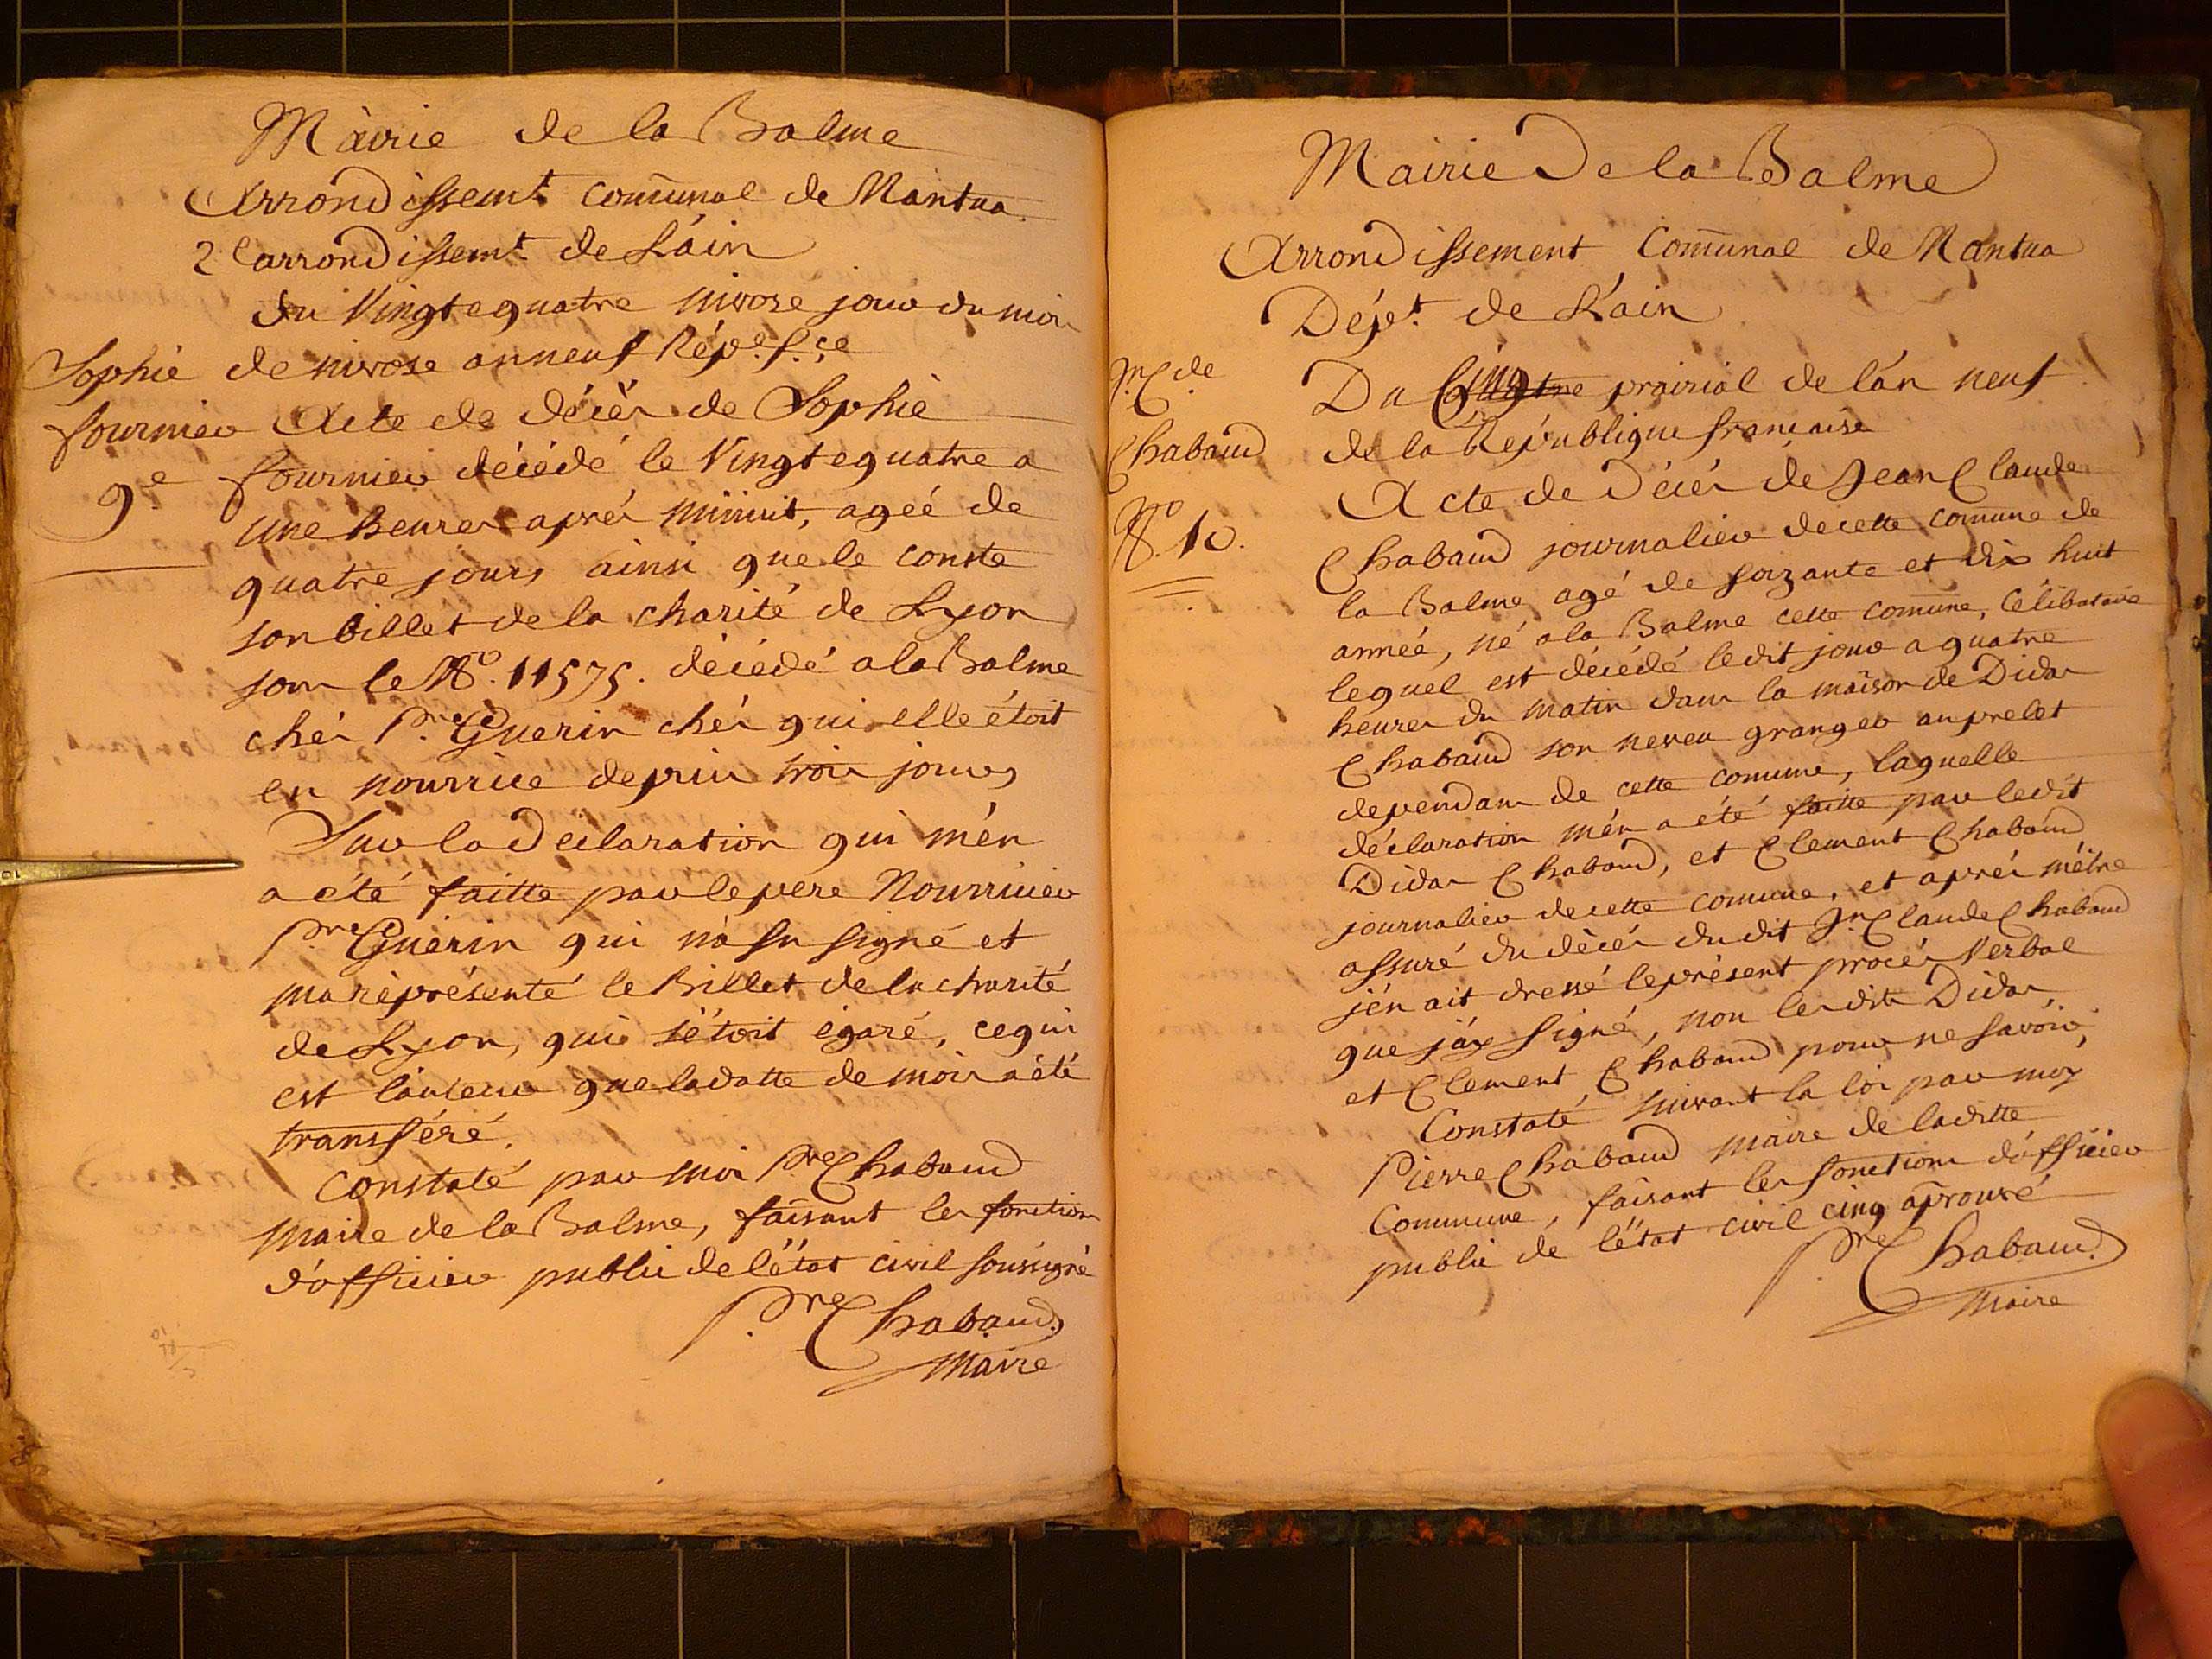 Màirie de la Balme
Arrondissemt. comūnal de Nantua
2 l'arrondissemt. de L'ain
du Vingt e quatre nivose jour du mois
de nivose an neuf Répe. fçe
Sophie
fournier
9e
Acte de décès de Sophie
fournier décédé le Vingt e quatre a
une heures aprés minuit, ageé de
quatre jours ainsi que le conste
son billet de la charité de Lyon
sous le No. 11575. décédé a la Balme
chés Pre Guerin chés qui elle étoit
en nourrice depuis trois jours
Sur la Déclaration qui m'én
a été faitte par le pere Nourricier
Pre Guerin qui n'a su signé et
ma réprésenté le Billet de la charité
de Lyon, qui s'étoit égaré, ce qui
est l'auteur que la datte de mois a été
transféré.
Constaté par moi Pre Chabaud
maire de la Balme, faisant les fonction
d'officier public de l'état civil sousigné
Pre Chabaud
Maire
Mairie De la Balme
Arrondissement Comūnal de Nantua
Dépt. de L'ain
Jn Cde.
Chabaud
No. 10.
Du Cinq prairial de l'an neuf
de la République française
Acte de Décés de Jean Claude
Chabaud journalier de cette comune de
la Balme agé de soizante et dix huit
anneé, né a la Balme cette comune, Célibataire
lequel est décédé ledit jour a quatre
heures du matin dans la maison de Didas
Chabaud son neveu granger au prelet
dependans de cette comune, laquelle
déclaration m'én a été faitte par ledit
Didas Chabaud, et Clement Chabaud
journalier de cette comune, et aprés m'être
assuré du décés du dit Jn Claude Chabaud
j'én ait dressé le présent procés Verbal
que j'áy signé, non les dits Didas,
et Clement Chabaud pour ne savoir,
Constaté suivant la loi par moy
Pierre Chabaud maire de laditte
Commune, faisant les fonctions d'officier
public de l'état civil cinq aprouvé
Pre Chabaud
Maire